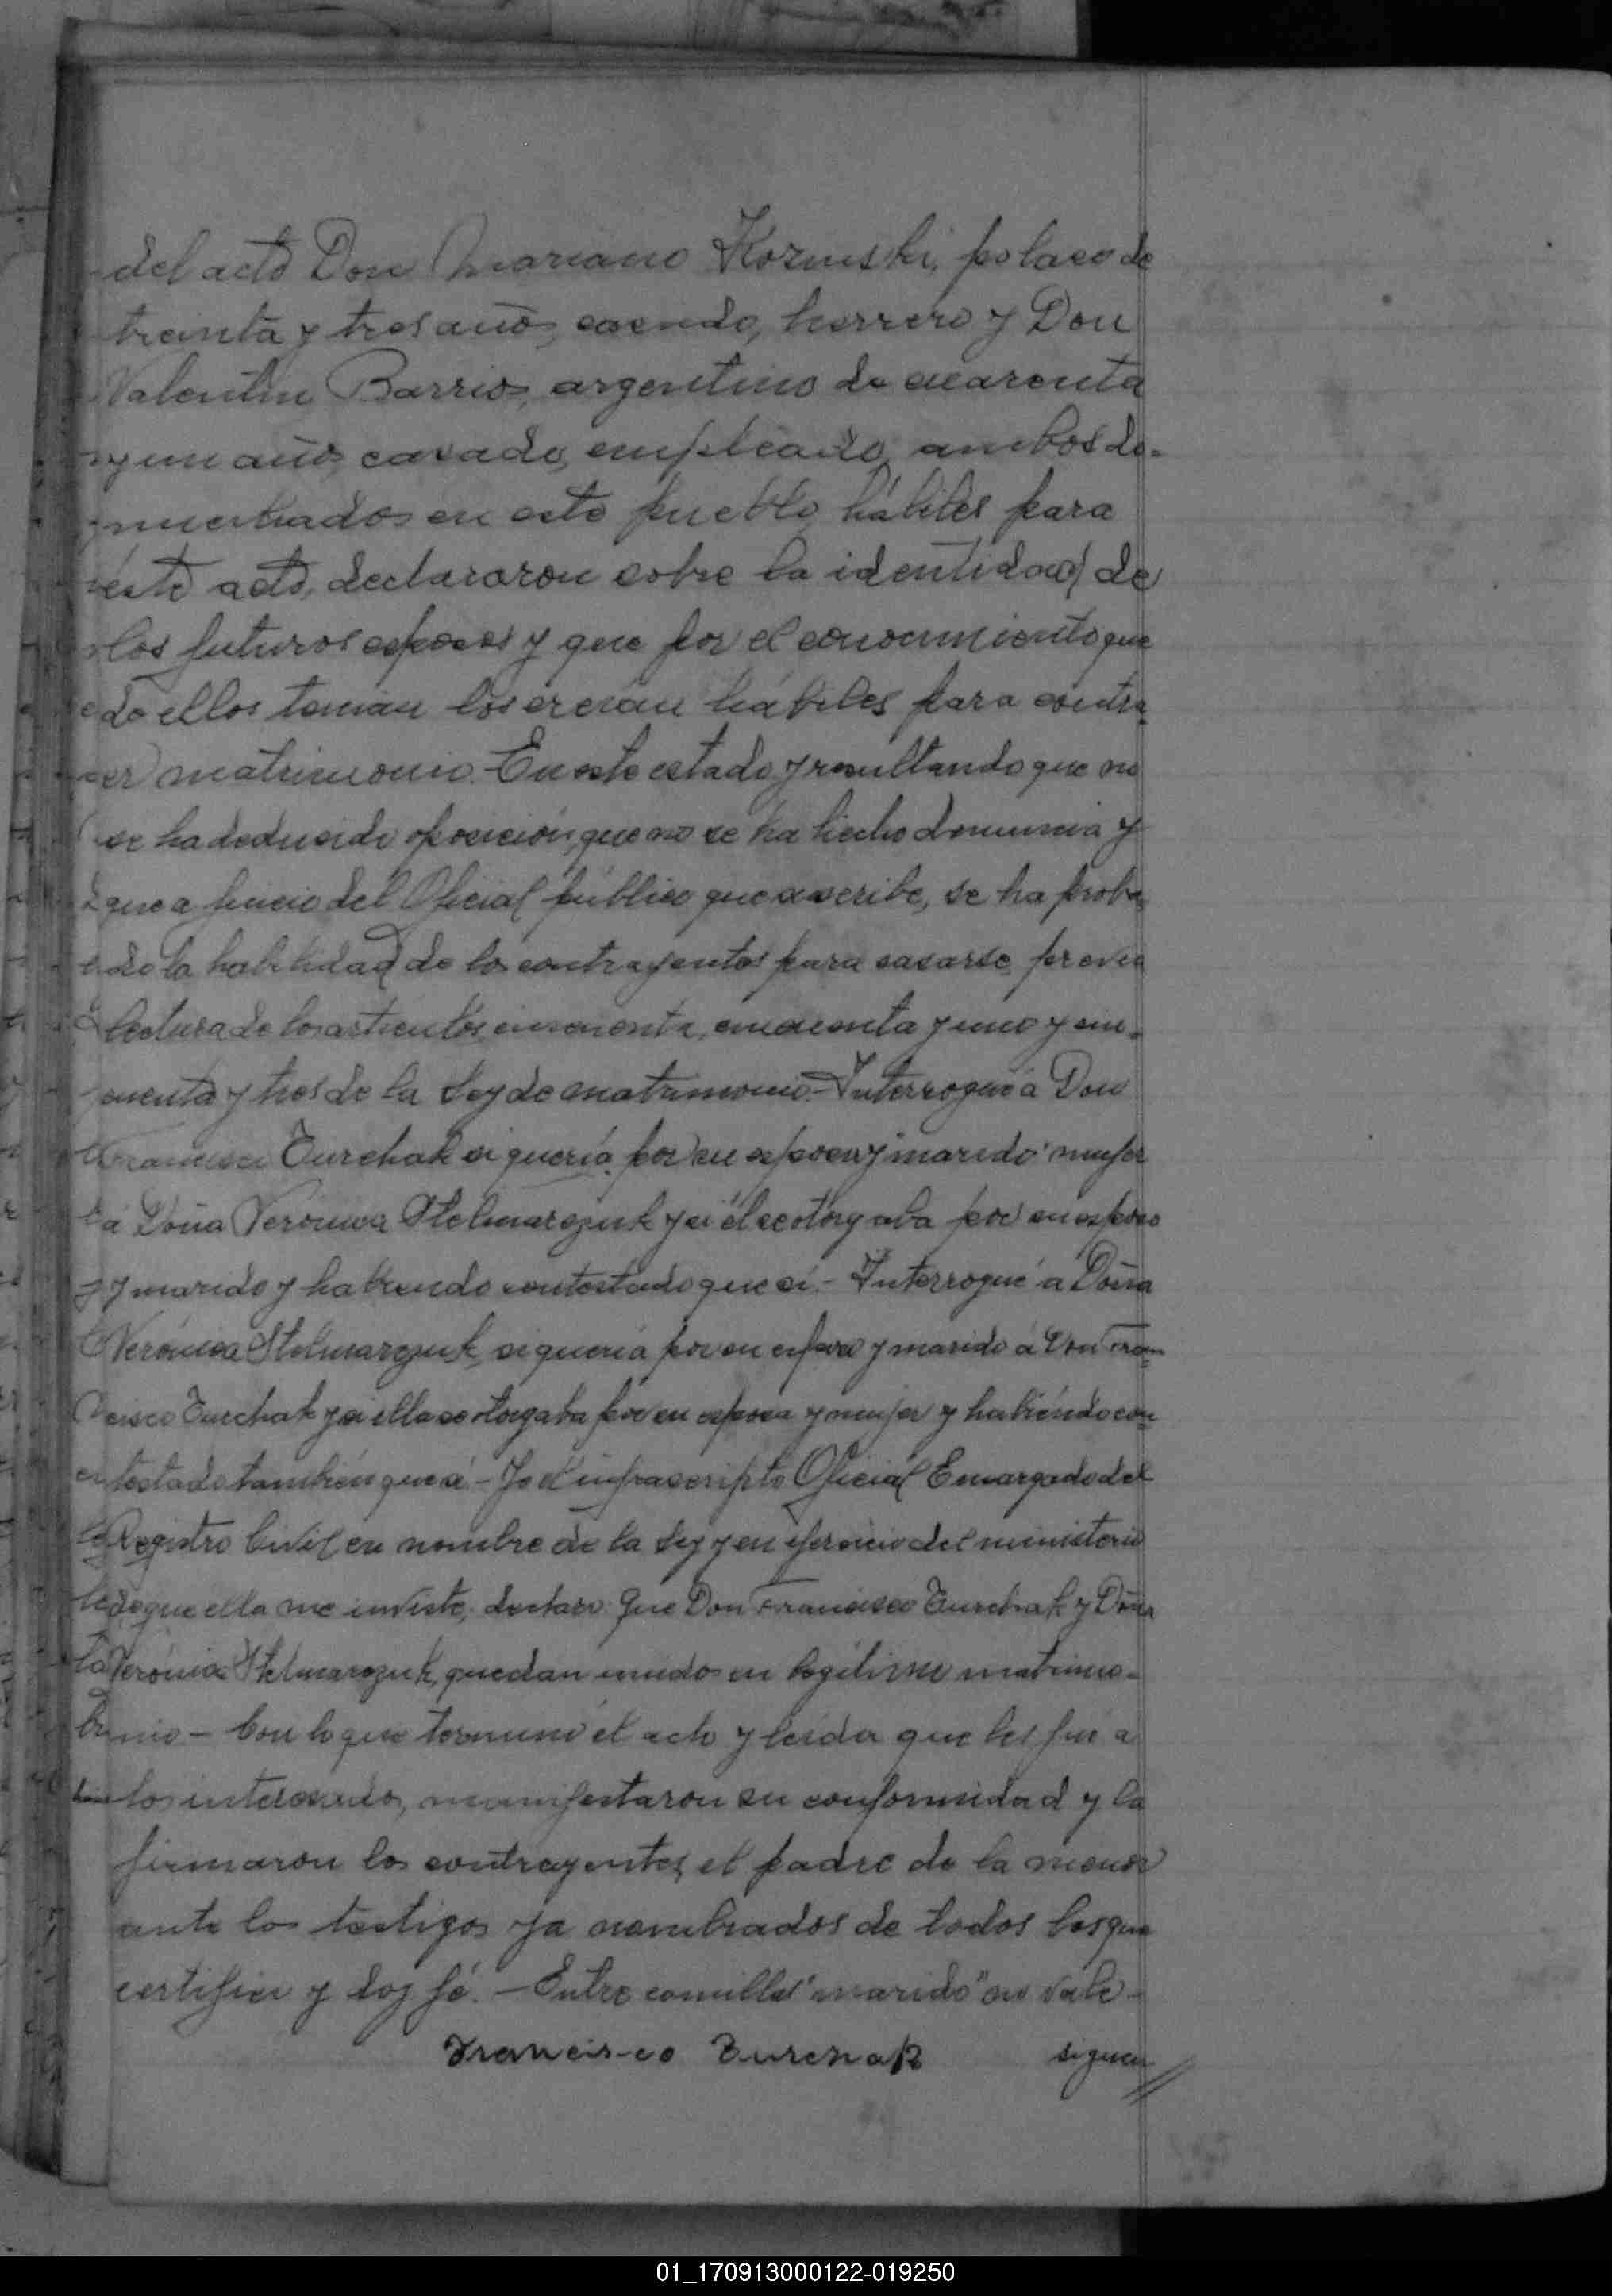 del acto Don Mariano Kozinski, polaco de
treinta y tres años, casado, herrero y Don
Valentin Barrios, argentino de cuarenta
y un años, casado, empleado, ambos do-
miciliados en este pueblo, hábiles para
éste acto, declararon sobre la identidad de
los futuros esposos y que por el conocimiento que
de ellos tenían los creían hábiles para contra-
er matrimonio. - En este estado y resultando que no
se ha deducido oposición, que no se ha hecho denuncia y
que a juicio del Oficial público que suscribe, se ha proba
do la habilidad de los contrayentes para casarse, previa
lectura de los artículos, cincuenta, cincuenta y uno y cin-
cuenta y tres de la Ley de matrimonio. - Interrogué a Don
Francisco Turchak si quería por su esposa y "marido" mujer
a Doña Verónica Stelmarczuk y si él se otorgaba por su esposo
y marido y habiendo contestado que sí. - Interrogué a Doña
Verónica Stelmarczuk, si quería por su esposo y marido á Don Fran-
cisco Turchak y si ella se otorgaba por su esposa y mujer y habiéndo con-
testado también que sí. - Yo el infrascripto Oficial Encargado del
Registro Civil en nombre de la Ley y en ejercicio del ministerio
de que ella me inviste, declaro: Que Don Francisco Turchak y Doña
Verónica Stelmarczuk, quedan unidos en legítimo matrimo-
nio - Con lo que terminó el acto y leída que les fué a
los interesados, manifestaron su conformidad y la
firmaron los contrayentes, el padre de la menor
ante los testigos ya nombrados de todos los que
certifico y doy fé. - Entre comillas "marido" no vale -
Francisco Turchak siguen //
01_170913000122-019250